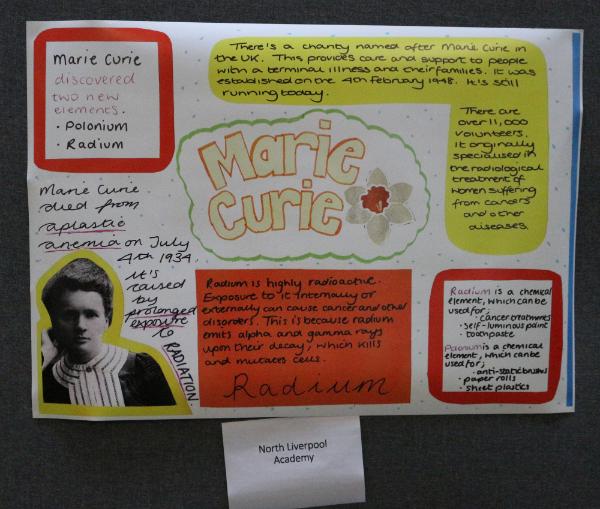 Marie Curie
discovered
two new
elements.
• Polonium
• Radium
There's a charity named after Marie Curie in
the UK. This provides care and support to people
with a terminal illness and their families. It was
established on the 4th February 1948. It's still
running today.
There are
over 11,000
volunteers.
It originally
specialised in
the radiological
treatment of
women suffering
from cancers
and other
diseases.
Marie
Curie
Marie Curie
died from
aplastic
anemia on July
4th 1934.
It's
caused
by
prolonged
exposure
to
RADIATION.
Radium is highly radioactive.
Exposure to it internally or
externally can cause cancer and other
disorders. This is because radium
emits alpha and gamma rays
upon their decay, which kills
and mutates cells.
Radium
Radium is a chemical
element, which can be
used for;
• cancer treatments
• self-luminous paint
• toothpaste
is a chemical
element, which can be
used for;
• anti-static brushes
• paper rolls
• sheet plastics
North Liverpool
Academy